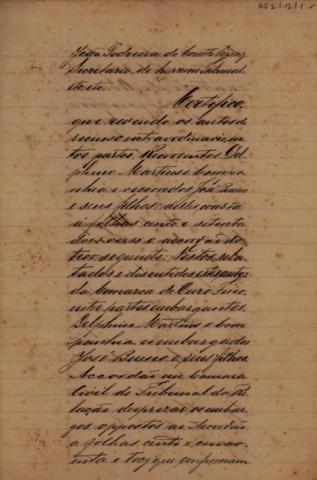 BG 2.1.12.1-1
João Pedreira do Couto Ferraz
Secretario do Supremo Tribunal
etc etc.
Certifico,
que revendo os autos de
recurso extraordinario, en
tre partes, Recorrentes Del
phino Martins e Compa
nhia e recorridos José Bueno
e seus filhos: delles consta
a folhas cento e setenta
e accordão do
teor seguinte: Vistos, rela
tados e discutidos estes autos
da Comarca de Ouro Fino,
entre partes embargantes
Delphino Martins e Com
panhia e embargados
José Bueno e seus filhos.
Accordão em Camara
Civil do Tribunal da Re
lação desprezar os embar
gos oppostos ao Accordão
a folhas cento e cinco
enta e trez que confirmam